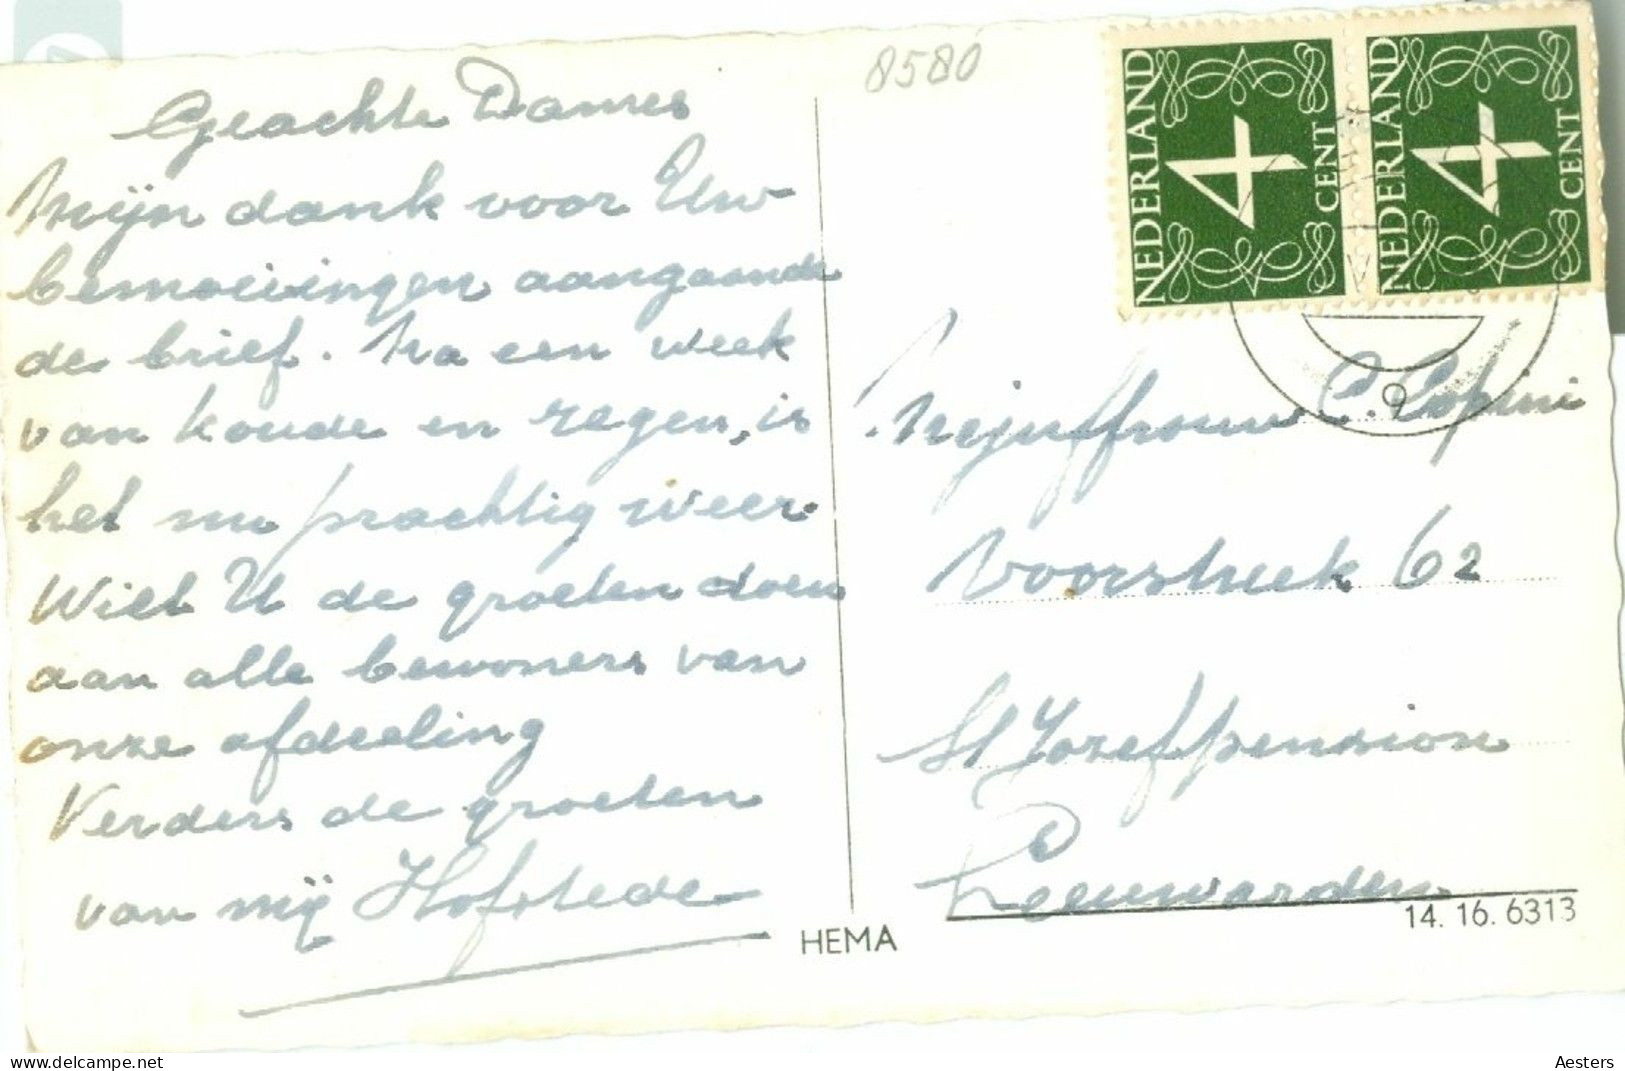 8580
NEDERLAND
4
CENT
NEDERLAND
4
CENT
Geachte Dames
Mijn dank voor Uw
bemoeiingen aangaande
de brief. Na een week
van koude en regen, is
het nu prachtig weer
Wilt U de groeten doen
aan alle bewoners van
onze afdeeling
Verders de groeten
van mij Hofstede
Mejuffrouw C.
Voorstreek 62
St Jozefpension
Leeuwarden
HEMA
14. 16. 6313
Aesters